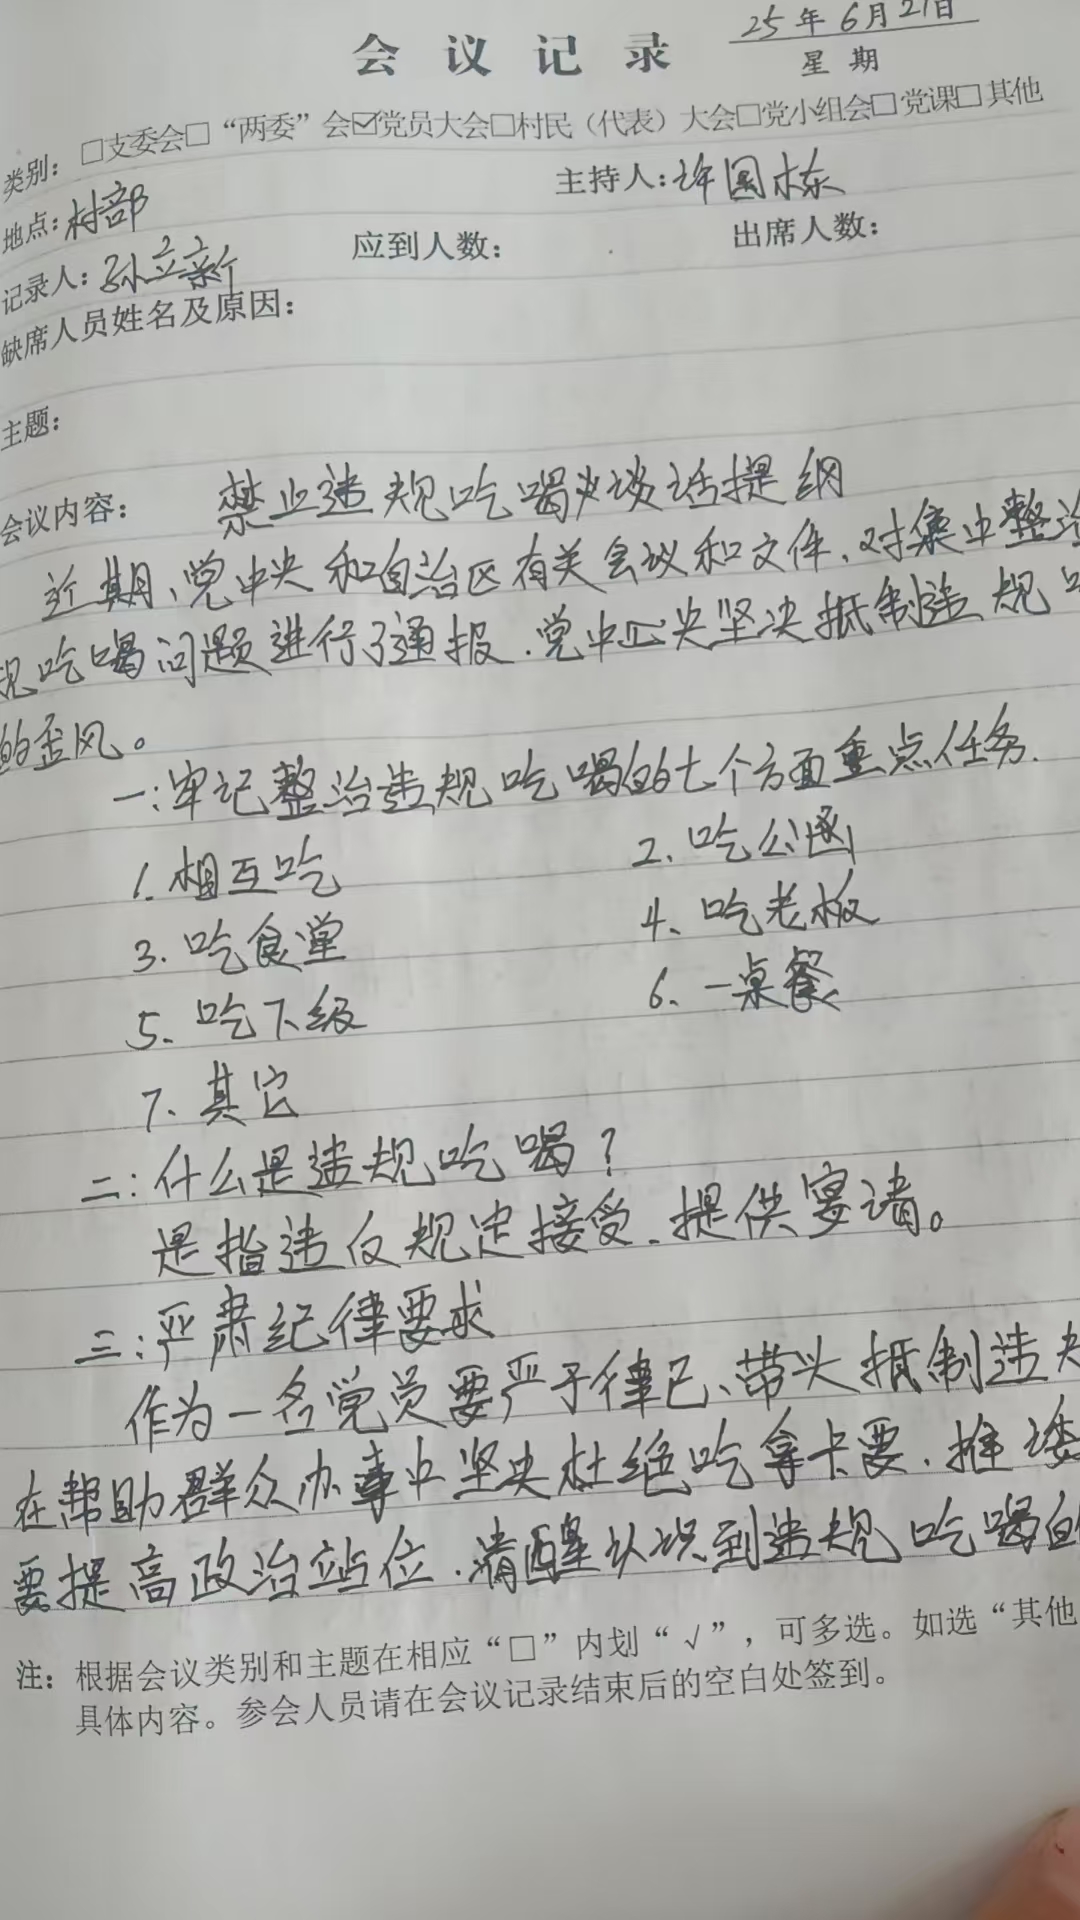 25年6月21日
会议记录
星期
类别：□支委会□“两委”会☑党员大会□村民（代表）大会□党小组会□党课□其他
地点：村部 主持人：许国栋
记录人：孙立新 应到人数： 出席人数：
缺席人员姓名及原因：
主题：
会议内容： 禁止违规吃喝谈话提纲
近期、党中央和自治区有关会议和文件、对集中整治
规吃喝问题进行了通报．党中央坚决抵制违规
的歪风。
一：牢记整治违规吃喝的七个方面重点任务．
1. 相互吃 2、吃公函
3. 吃食堂 4、吃老板
5、吃下级 6、一桌餐
7、其它
二：什么是违规吃喝？
是指违反规定接受、提供宴请。
三：严肃纪律要求
作为一名党员要严于律己、带头抵制违规
在帮助群众办事中坚决杜绝吃拿卡要．推诿
要提高政治站位．清醒认识到违规吃喝的
注：根据会议类别和主题在相应“□”内划“√”，可多选。如选“其他
具体内容。参会人员请在会议记录结束后的空白处签到。